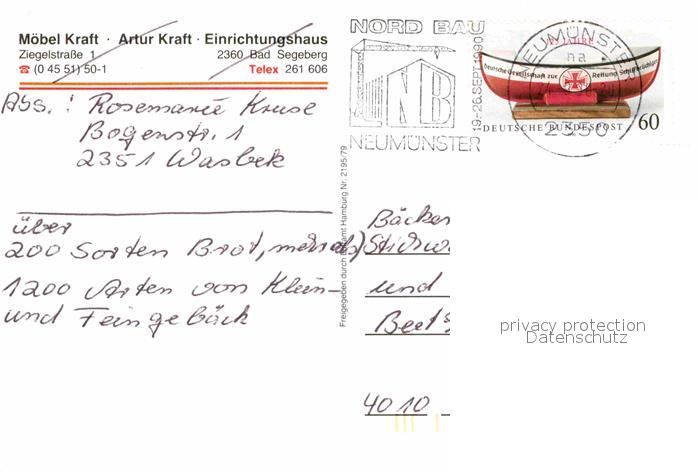 Möbel Kraft · Artur Kraft · Einrichtungshaus
Ziegelstraße 1 2360 Bad Segeberg
☎ (0 45 51) 50-1 Telex 261 606
Abs.: Rosemarie Kruse
Bogenstr. 1
2351 Wasbek
über
200 Sorten Brot, mehr als)
1200 Arten von Klein-
und Feingebäck
Freigegeben durch Luftamt Hamburg Nr. 2195/79
NORD BAU
NB
NEUMÜNSTER
19.-26. SEPT. 1990
NEUMÜNSTER
na
2350
125 JAHRE
Deutsche Gesellschaft zur Rettung Schiffbrüchiger
DEUTSCHE BUNDESPOST 60
Bäcker
Stichw
und
Beets
4010
privacy protection
Datenschutz